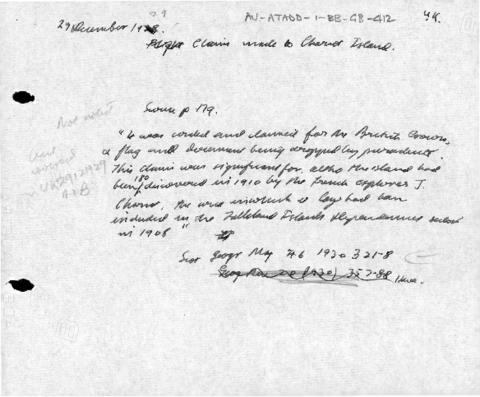 AU-ATADD-1-BB-GB-412 UK.
29 December 1928. 29
Flight Claim made to Charcot Island.
Swan p 179.
"It was circled and claimed for the British Crown,
a flag and document being dropped by parachute.
This claim was significant for, altho the island had
been discovered in 1910 by the French explorer J.
Charcot, the area in which it lay had been
included in the Falkland Islands Dependencies
in 1908"
Scot Geogr Mag 46 1930 321-8
Geog Rev 20 (1930) 357-88
Not noted
UK29121929